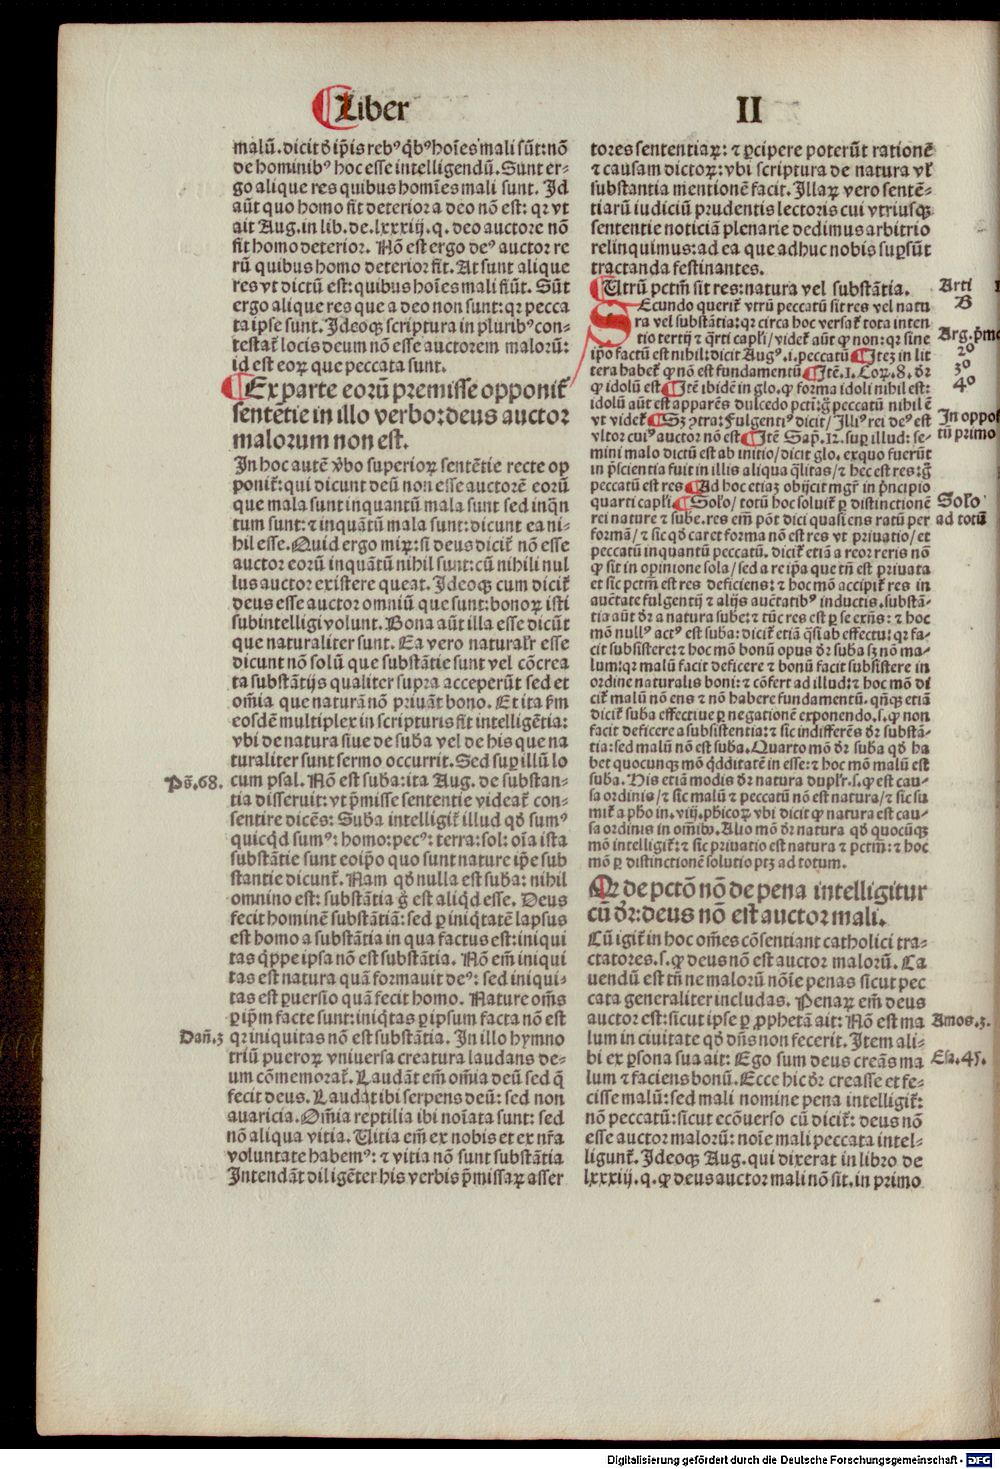 Liber
II
malū.dicit ꝺ ip̄is rebꝰ q̄bꝰ hoīes mali sūt:nō
de hominibꝰ hoc esse intelligendū.Sunt er-
go alique res quibus homīes mali sunt. Id
aūt quo homo fit deterior a deo nō est: qꝛ vt
ait Aug.in lib.de.lxxxiij.q. deo auctore nō
fit homo deterior. Nō est ergo deꝰ auctor re
rū quibus homo deterior fit. At sunt alique
res vt dictū est: quibus hoīes mali fiūt. Sūt
ergo alique res que a deo non sunt: qꝛ pecca
ta ipse sunt. Ideoqꝫ scriptura in pluribꝰ con-
testat᷑ locis deum nō esse auctorem malorū:
id est eoꝝ que peccata sunt.
Ex parte eorū premisse opponit᷑
sentētie in illo verbo:deus auctor
malorum non est.
In hoc autē v̄bo superioꝝ sentētie recte op
ponit᷑: qui dicunt deū non esse auctorē eorū
que mala sunt inquantū mala sunt sed inq̄n
tum sunt: ⁊ inquātū mala sunt: dicunt ea ni-
hil esse. Quid ergo miꝝ: si deus dicit᷑ nō esse
auctor eorū inquātū nihil sunt: cū nihili nul
lus auctor existere queat. Ideoqꝫ cum dicit᷑
deus esse auctor omniū que sunt: bonoꝝ isti
subintelligi volunt. Bona aūt illa esse dicūt
que naturaliter sunt. Ea vero naturalr̄ esse
dicunt nō solū que substātie sunt vel cōcrea
ta substātijs qualiter supra acceperūt sed et
om̄ia que naturā nō priuāt bono. Et ita ẜm
eosdē multiplex in scripturis fit intelligētia:
vbi de natura siue de sub̄a vel de his que na
turaliter sunt sermo occurrit. Sed suꝑ illū lo
Ps̄.68.
cum psal. Nō est sub̄a: ita Aug. de substan-
tia disseruit: vt p̄misse sententie videat᷑ con-
sentire dicēs: Sub̄a intelligit᷑ illud qḋ sumꝰ
quicq̄d sumꝰ: homo: pecꝰ: terra: sol: oīa ista
substātie sunt eoip̄o quo sunt nature ip̄e sub
stantie dicunt᷑. Nam qḋ nulla est sub̄a: nihil
omnino est: substātia g̊ est aliq̄d esse. Deus
fecit hominē substātiā: sed ꝑ iniq̄tatē lapsus
est homo a substātia in qua factus est: iniqui
tas q̄ppe ipsa nō est substātia. Nō em̄ iniqui
tas est natura quā formauit deꝰ: sed iniqui-
tas est ꝑuersio quā fecit homo. Nature om̄s
ꝑ ip̄m facte sunt: iniq̄tas ꝑ ipsum facta nō est
Dan̄.3
qꝛ iniquitas nō est substātia. In illo hymno
triū pueroꝝ vniuersa creatura laudans de-
um cōmemorat᷑. Laudāt em̄ om̄ia deū sed q̄
fecit deus. Laudāt ibi serpens deū: sed non
auaricia. Om̄ia reptilia ibi noīata sunt: sed
nō aliqua vitia. Uitia em̄ ex nobis et ex nr̄a
voluntate habemꝰ: ⁊ vitia nō sunt substātia
Intendāt diligēter his verbis p̄missaꝝ asser
tores sententiaꝝ: ⁊ ꝑcipere poterūt rationē
⁊ causam dictoꝝ: vbi scriptura de natura vł
substantia mentionē facit. Illaꝝ vero sentē-
tiarū iudiciū prudentis lectoris cui vtriusqꝫ
sententie noticiā plenarie dedimus arbitrio
relinquimus: ad ea que adhuc nobis suꝑsūt
tractanda festinantes.
Utrū pctm̄ sit res: natura vel substātia.
Arti 1
B
Secundo querit᷑ vtrū peccatū sit res vel natu
ra vel substātia: qꝛ circa hoc versat᷑ tota inten
tio tertij ⁊ q̄rti capl̄i/ videt᷑ aūt ꝙ non: qꝛ sine
Arg.p̄mo
ip̄o factū est nihil: dicit Augꝰ.i.peccatū Itez in lit
2º
tera habet᷑ ꝙ nō est fundamentū Itē.1. Coꝝ.8. dr̄
3º
ꝙ idolū est Itē ibidē in glo.ꝙ forma idoli nihil est:
4º
idolū aūt est apparēs dulcedo pcti: g̊ peccatū nihil ē
vt videt᷑ Sꝫ ꝯtra: Fulgentiꝰ dicit/ Illiꝰ rei deꝰ est
In oppositū primo
vltor cuiꝰ auctor nō est Itē Sap̄.12. suꝑ illud: se-
mini malo dictū est ab initio/ dicit glo. ex quo fuerūt
in p̄scientia fuit in illis aliqua q̄litas/ ⁊ hec est res: g̊
peccatū est res Ad hoc etiaꝫ obijcit mgr̄ in p̄ncipio
quarti capl̄i. Solo/ totū hoc soluit᷑ ꝑ distinctionē
Solo
ad totū
rei nature ⁊ sub̄e. res em̄ pōt dici quasi ens ratū per
formā/ ⁊ sic qḋ caret forma nō est res vt priuatio/ et
peccatū inquantū peccatū. dicit᷑ etiā a reor reris nō
ꝙ sit in opinione sola/ sed a re ip̄a que tn̄ est priuata
et sic pctm̄ est res deficiens: ⁊ hoc mō accipit᷑ res in
auctēate fulgentij ⁊ alijs auctēatibꝰ inductis. substā-
tia aūt dr̄ a natura sube: ⁊ tūc res est ꝑ se exn̄s: ⁊ hoc
mō nullꝰ actꝰ est sub̄a: dicit᷑ etiā q̄si ab effectu: qꝛ fa-
cit subsistere: ⁊ hoc mō bonū opus dr̄ sub̄a sꝫ nō ma-
lum: qꝛ malū facit deficere ⁊ bonū facit subsistere in
ordine naturalis boni: ⁊ cōfert ad illud: ⁊ hoc mō di
cit᷑ malū nō ens ⁊ nō habere fundamentū. qn̄qꝫ etiā
dicit᷑ sub̄a effectiue ꝑ negationē exponendo.s.ꝙ non
facit deficere a subsistentia: ⁊ sic indifferēs dr̄ substā-
tia: sed malū nō est sub̄a. Quarto mō dr̄ sub̄a qḋ ha
bet quocunqꝫ mō q̄dditatē in esse: ⁊ hoc mō malū est
sub̄a. His etiā modis dr̄ natura duplr̄.s.ꝙ est cau-
sa ordinis/ ⁊ sic malū ⁊ peccatū nō est natura/ ⁊ sic su
mit᷑ a pho in.viij.phicoꝝ vbi dicit ꝙ natura est cau-
sa ordinis in om̄ibꝰ. Alio mō dr̄ natura qḋ quocūqꝫ
mō intelligit᷑: ⁊ sic priuatio est natura ⁊ pctm̄: ⁊ hoc
mō ꝑ distinctionē solutio ptꝫ ad totum.
Qꝛ de pctō nō de pena intelligitur
cū dr̄: deus nō est auctor mali.
Cū igit᷑ in hoc om̄es cōsentiant catholici tra-
ctatores.s.ꝙ deus nō est auctor malorū. Ca
uendū est tn̄ ne malorū noīe penas sicut pec
cata generaliter includas. Penaꝝ em̄ deus
auctor est: sicut ipse ꝑ ꝓphetā ait: Nō est ma
Amos.3.
lum in ciuitate qḋ dn̄s non fecerit. Item ali-
bi ex ꝑsona sua ait: Ego sum deus creās ma
Esa.45.
lum ⁊ faciens bonū. Ecce hic dr̄ creasse et fe-
cisse malū: sed mali nomine pena intelligit᷑:
nō peccatū: sicut ecōuerso cū dicit᷑: deus nō
esse auctor malorū: noīe mali peccata intel-
ligunt᷑. Ideoqꝫ Aug. qui dixerat in libro de
lxxxiij.q. ꝙ deus auctor mali nō sit. in primo
Digitalisierung gefördert durch die Deutsche Forschungsgemeinschaft - DFG